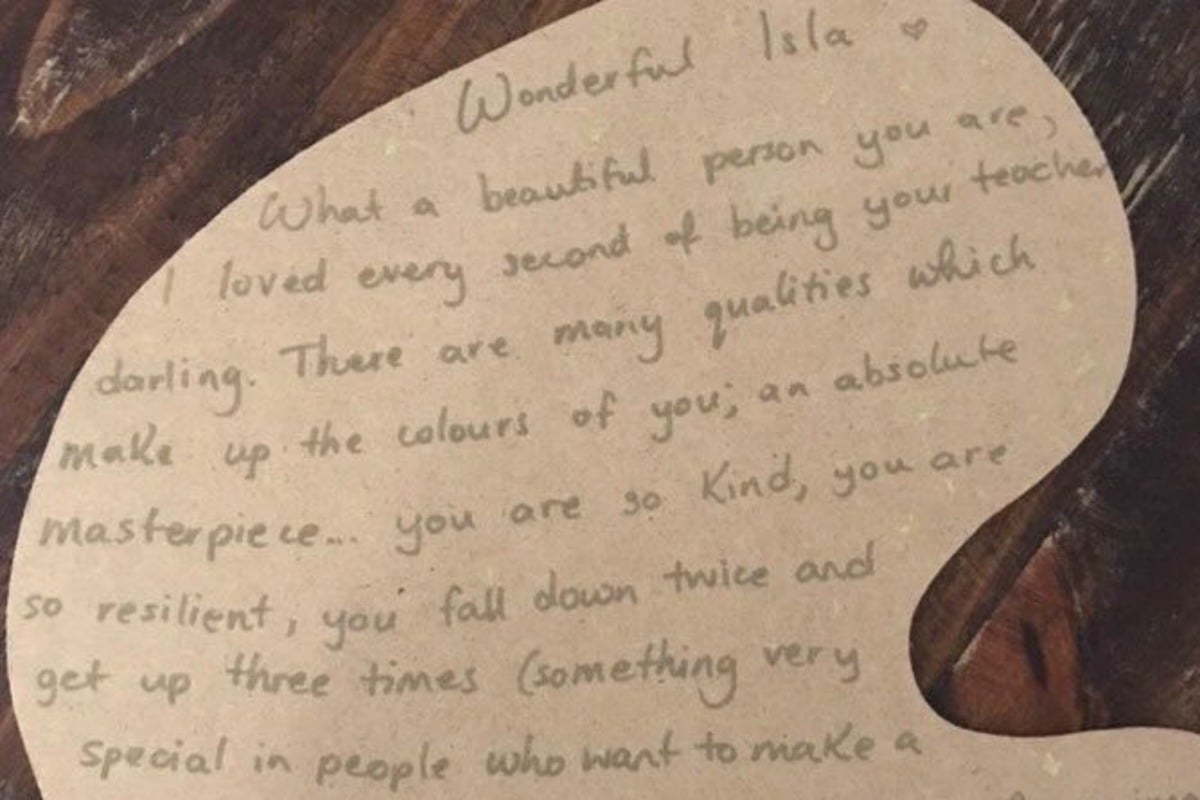 Wonderful Isla ♥
What a beautiful person you are,
I loved every second of being your teacher
darling. There are many qualities which
make up the colours of you; an absolute
masterpiece... you are so kind, you are
so resilient, you fall down twice and
get up three times (something very
special in people who want to make a